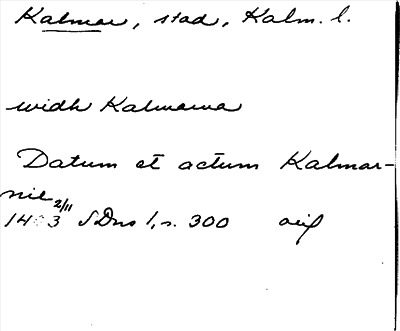 Kalmar, stad, Kalm. l.
widh Kalmarna
Datum et actum Kalmar-
nie
2/11
1403 SDns 1, s. 300 orig